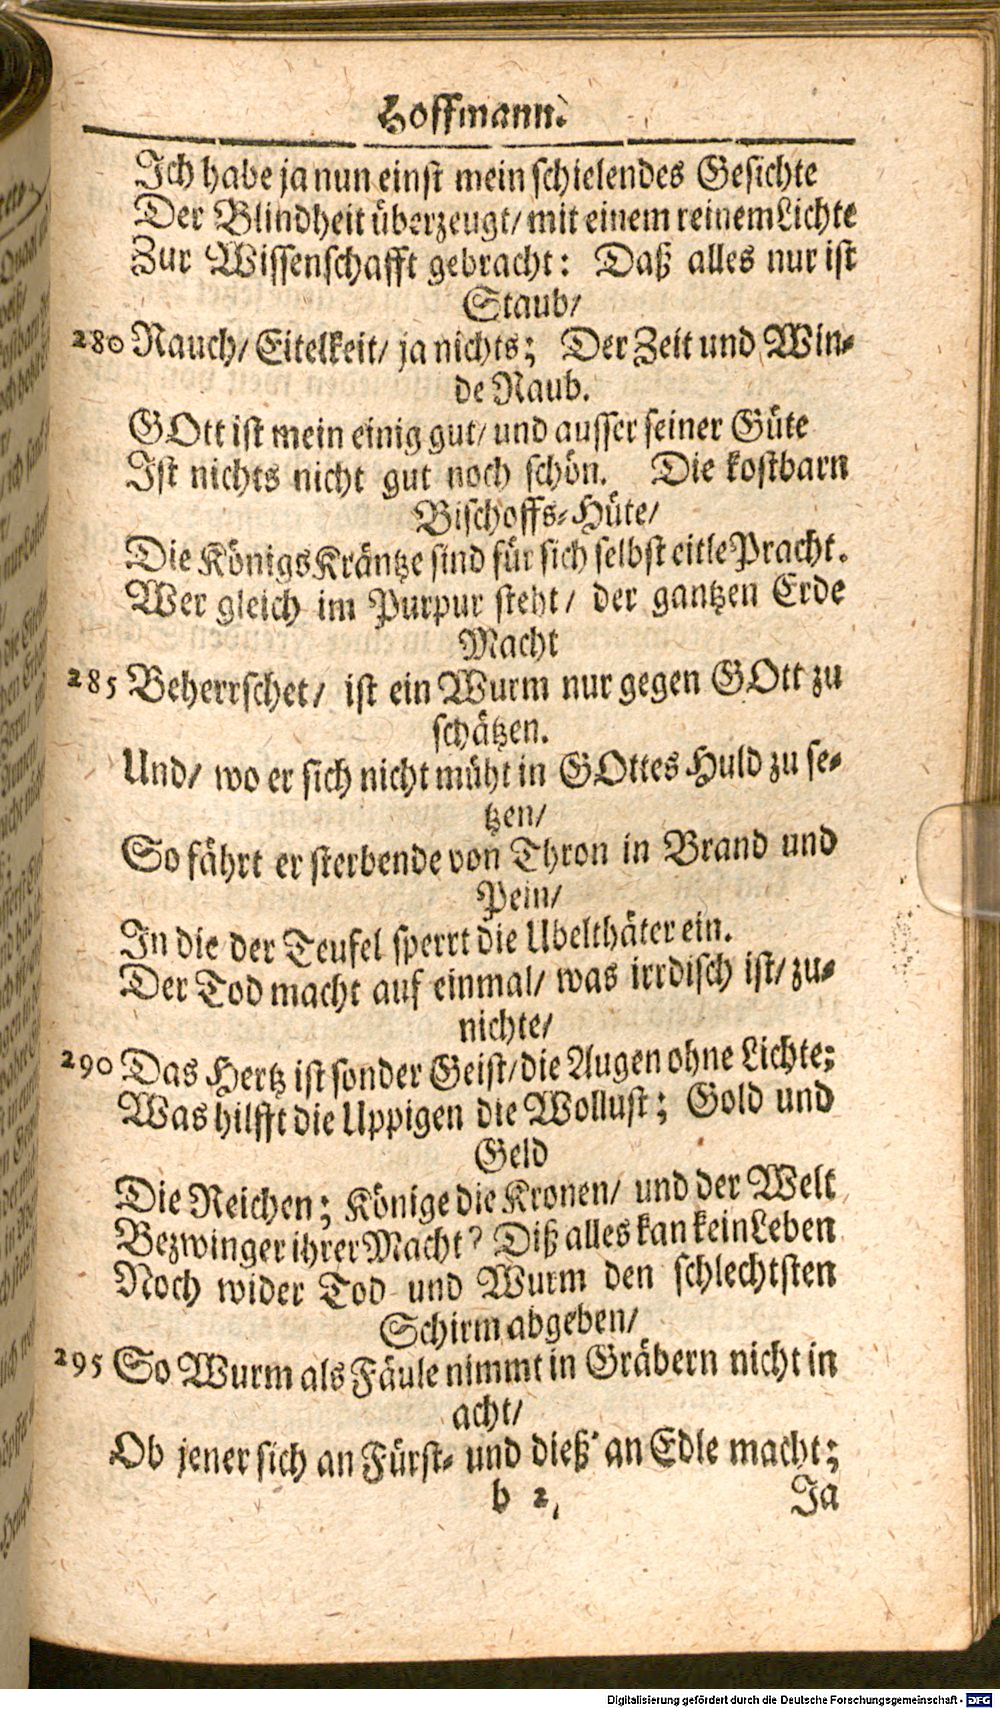 Hoffmann.
Ich habe ja nun einst mein schielendes Gesichte
Der Blindheit überzeugt/ mit einem reinem Lichte
Zur Wissenschafft gebracht: Daß alles nur ist
Staub/
280 Rauch/ Eitelkeit/ ja nichts; Der Zeit und Win-
de Raub.
GOtt ist mein einig gut/ und ausser seiner Güte
Ist nichts nicht gut noch schön. Die kostbarn
Bischoffs-Hüte/
Die Königs Kräntze sind für sich selbst eitle Pracht.
Wer gleich im Purpur steht/ der gantzen Erde
Macht
285 Beherrschet/ ist ein Wurm nur gegen GOtt zu
schätzen.
Und/ wo er sich nicht müht in GOttes Huld zu se-
tzen/
So fährt er sterbende von Thron in Brand und
Pein/
In die der Teufel sperrt die Ubelthäter ein.
Der Tod macht auf einmal/ was irrdisch ist/ zu-
nichte/
290 Das Hertz ist sonder Geist/ die Augen ohne Lichte;
Was hilfft die Uppigen die Wollust; Gold und
Geld
Die Reichen; Könige die Kronen/ und der Welt
Bezwinger ihrer Macht? Diß alles kan kein Leben
Noch wider Tod und Wurm den schlechtsten
Schirm abgeben/
295 So Wurm als Fäule nimmt in Gräbern nicht in
acht/
Ob jener sich an Fürst- und dieß' an Edle macht;
b 2,
Ja
Digitalisierung gefördert durch die Deutsche Forschungsgemeinschaft - DFG